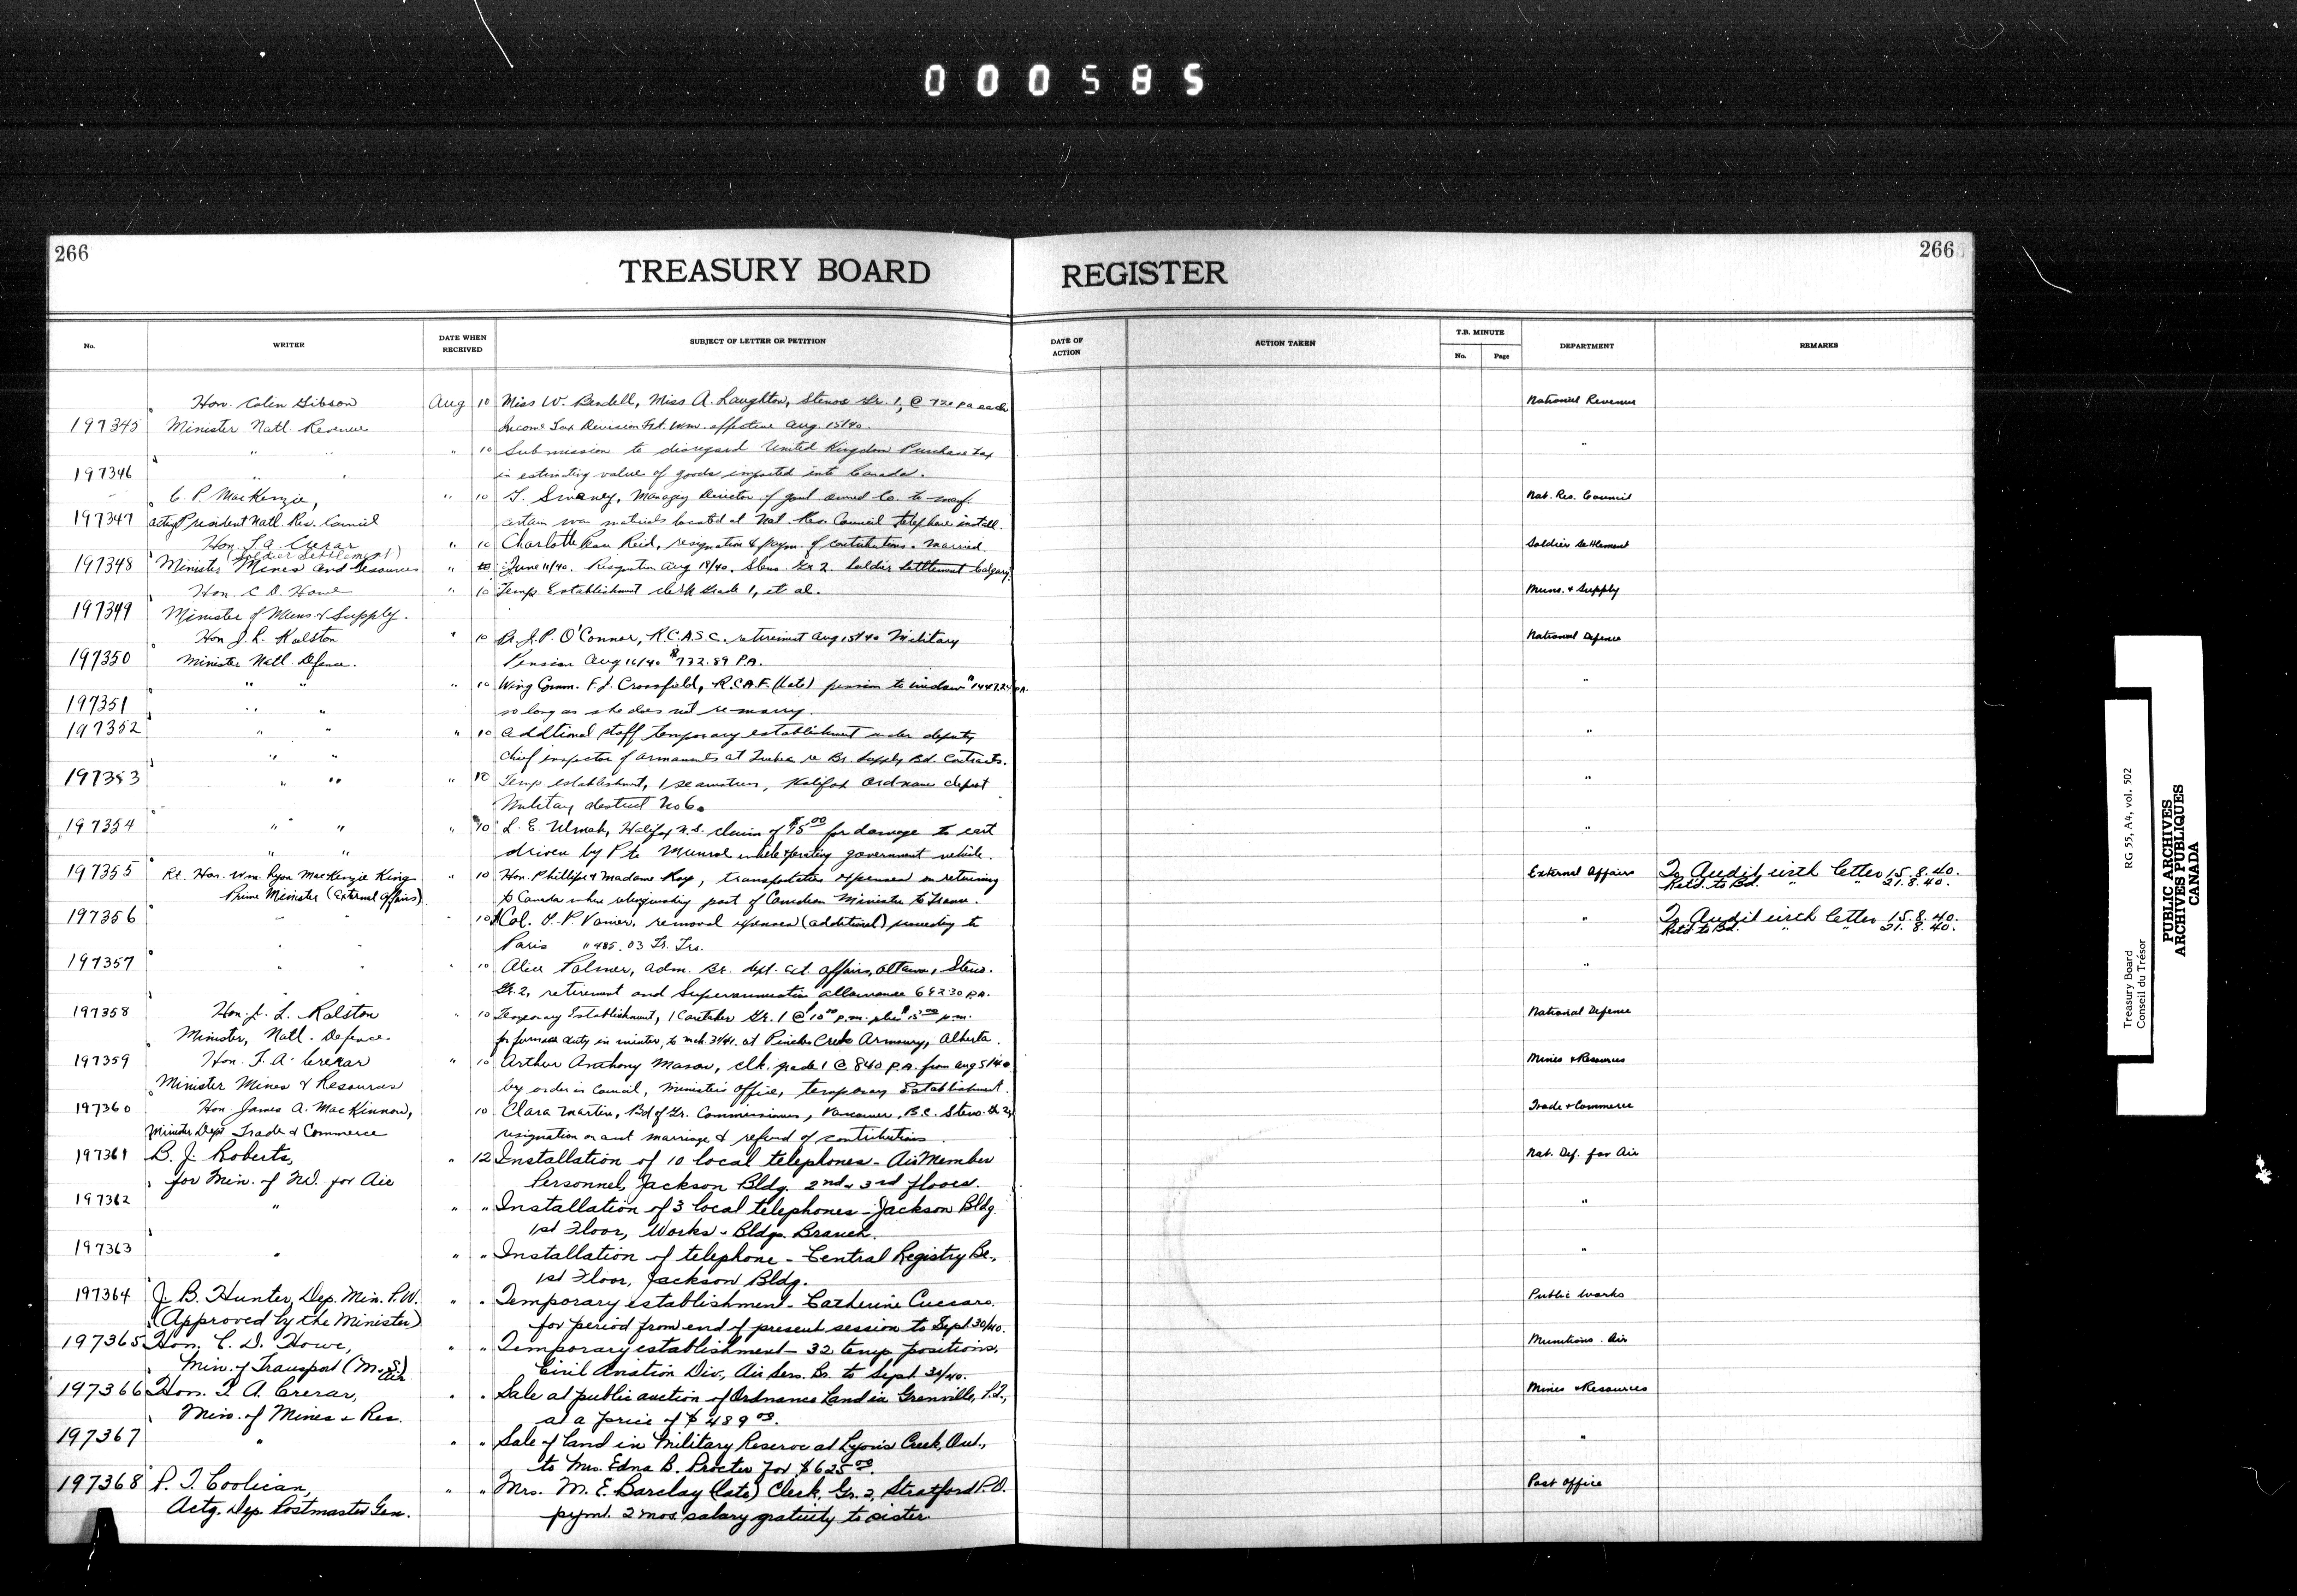 000585
266
266
TREASURY BOARD REGISTER
No.
WRITER
DATE WHEN RECEIVED
SUBJECT OF LETTER OR PETITION
DATE OF ACTION
ACTION TAKEN
T.B. MINUTE
No.
Page
DEPARTMENT
REMARKS
Hon. Colin Gibson Aug 10 Miss W. Bendell, Miss A. Laughton, Stenos Gr. 1, @ 720 pa each National Revenue
197345 Minister Natl. Revenue Income Tax Division Ft. Wm. effective Aug. 15/40.
" " " 10 Submission to disregard United Kingdom Purchase Tax "
197346 " " in estimating value of goods imported into Canada.
C. P. MacKenzie, " 10 Managing Director of govt owned Co. to manf. Nat. Res. Council
197347 Acting President Natl. Res. Council certain war materials located at Nat. Res. Council telephone install.
Hon. T. A. Crerar " 10 Charlotte Jean Reid, resignation & paym. of contributions. Married. Soldier Settlement
(Soldier Settlement)
197348 Minister Mines and Resources " 10 June 11/40. Resignation Aug 18/40. Steno. Gr 2. Soldier Settlement Calgary.
Hon. C. D. Howe " 10 Temp. Establishment clerk Grade 1, et al. Muns. & Supply
197349 Minister of Muns & Supply.
Hon J. L. Ralston " 10 J. P. O'Connor, R.C.A.S.C. retirement Aug 15/40 Military National Defence
197350 Minister Natl. Defence. Pension Aug 16/40 $732.89 P.A.
" " " 10 Wing Comm. F. J. Crossfield, R.C.A.F. (late) pension to widow P.A. "
197351 " " so long as she does not re-marry.
197352 " " " 10 Additional staff temporary establishment under deputy "
" " chief inspector of armaments at Quebec re Br. Supply Bd. Contracts.
197353 " " " 10 Temp. establishment, 1 seamstress, Halifax Ordnance depot "
Military district No 6.
197354 " " " 10 L. E. Halifax N.S. claim of for damage to
" " driven by Pte while operating government vehicle.
197355 Rt. Hon. Wm. Lyon MacKenzie King " 10 Hon. Phillipe & Madame Roy, transportation expenses in returning External Affairs To Audit with letter 15.8.40.
Ret'd to Bd. " " 21.8.40.
Prime Minister (External Affairs) to Canada when relinquishing post of Canadian Minister to France.
197356 " " " 10 Col. G. P. Vanier, removal expenses (additional) proceeding to " To Audit with letter 15.8.40.
Ret'd to Bd. " " 21.8.40.
" " Paris " 485.03 Fr. Frs.
197357 " " " 10 Alice Palmer, adm. Br. dept. ext. affairs, Ottawa, Steno. "
" " Gr. 2, retirement and Superannuation allowance 692.30 P.A.
197358 Hon. J. L. Ralston " 10 Temporary Establishment, 1 Caretaker Gr. 1 @ $10.00 p.m. plus $15.00 p.m. National Defence
Minister, Natl. Defence for furnace duty in winter, to Mch. 31/41. at Pincher Creek Armoury, Alberta.
197359 Hon. T. A. Crerar " 10 Arthur Anthony Mason, clk. grade 1 @ 840 P.A. from Aug 5/40 Mines & Resources
Minister Mines & Resources by order in Council, Minister's Office, temporary Establishment.
197360 Hon James A. MacKinnon, 10 Clara Martin, Bd of Gr. Commissioners, Vancouver, B.C. Steno. Gr 2, Trade & Commerce
Minister Dept Trade & Commerce resignation on acct marriage & refund of contributions.
197361 B. J. Roberts, " 12 Installation of 10 local telephones - Air Member Nat. Def. for Air
for Min. of N.D. for Air Personnel, Jackson Bldg. 2nd & 3rd floors.
197362 " " " Installation of 3 local telephones - Jackson Bldg. "
1st Floor, Works & Bldgs. Branch.
197363 " " " Installation of telephone - Central Registry Br., "
1st Floor, Jackson Bldg.
197364 J. B. Hunter, Dep. Min. P.W. " " Temporary establishment - Catherine Public Works
(Approved by the Minister) for period from end of present session to Sept. 30/40.
197365 Hon. C. D. Howe, " " Temporary establishment - 32 temp positions, Munitions. Air
Min. of Transport (M.&S.) Air Civil Aviation Div., Air Serv. Br. to Sept 30/40.
197366 Hon. T. A. Crerar, " " Sale at public auction of Ordnance Land in Grenville, P.Q., Mines & Resources
Min. of Mines & Res. at a price of $489.00.
197367 " " " Sale of land in Military Reserve at Lyons Creek, Ont., "
to Mrs. Edna B. Procter for $625.00.
197368 P. T. Coolican, " " Mrs. M. E. Barclay (late) Clerk, Gr. 2, Stratford P.O. Post Office
Actg. Dep. Postmaster Gen. paymt. 2 mos. salary gratuity to sister.
Treasury Board
Conseil du Trésor
RG 55, A4, vol. 502
PUBLIC ARCHIVES
ARCHIVES PUBLIQUES
CANADA